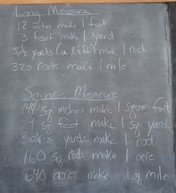 Long Measure
12 make 1 foot
3 feet make 1 yard
5½ yards (or 16½ ft) make 1 rod
320 rods make 1 mile
Square Measure
144 sq inches make 1 square foot
9 sq feet make 1 sq yard
30¼ s yards make 1 rod
160 sq rods make 1 acre
640 acres make 1 sq mile